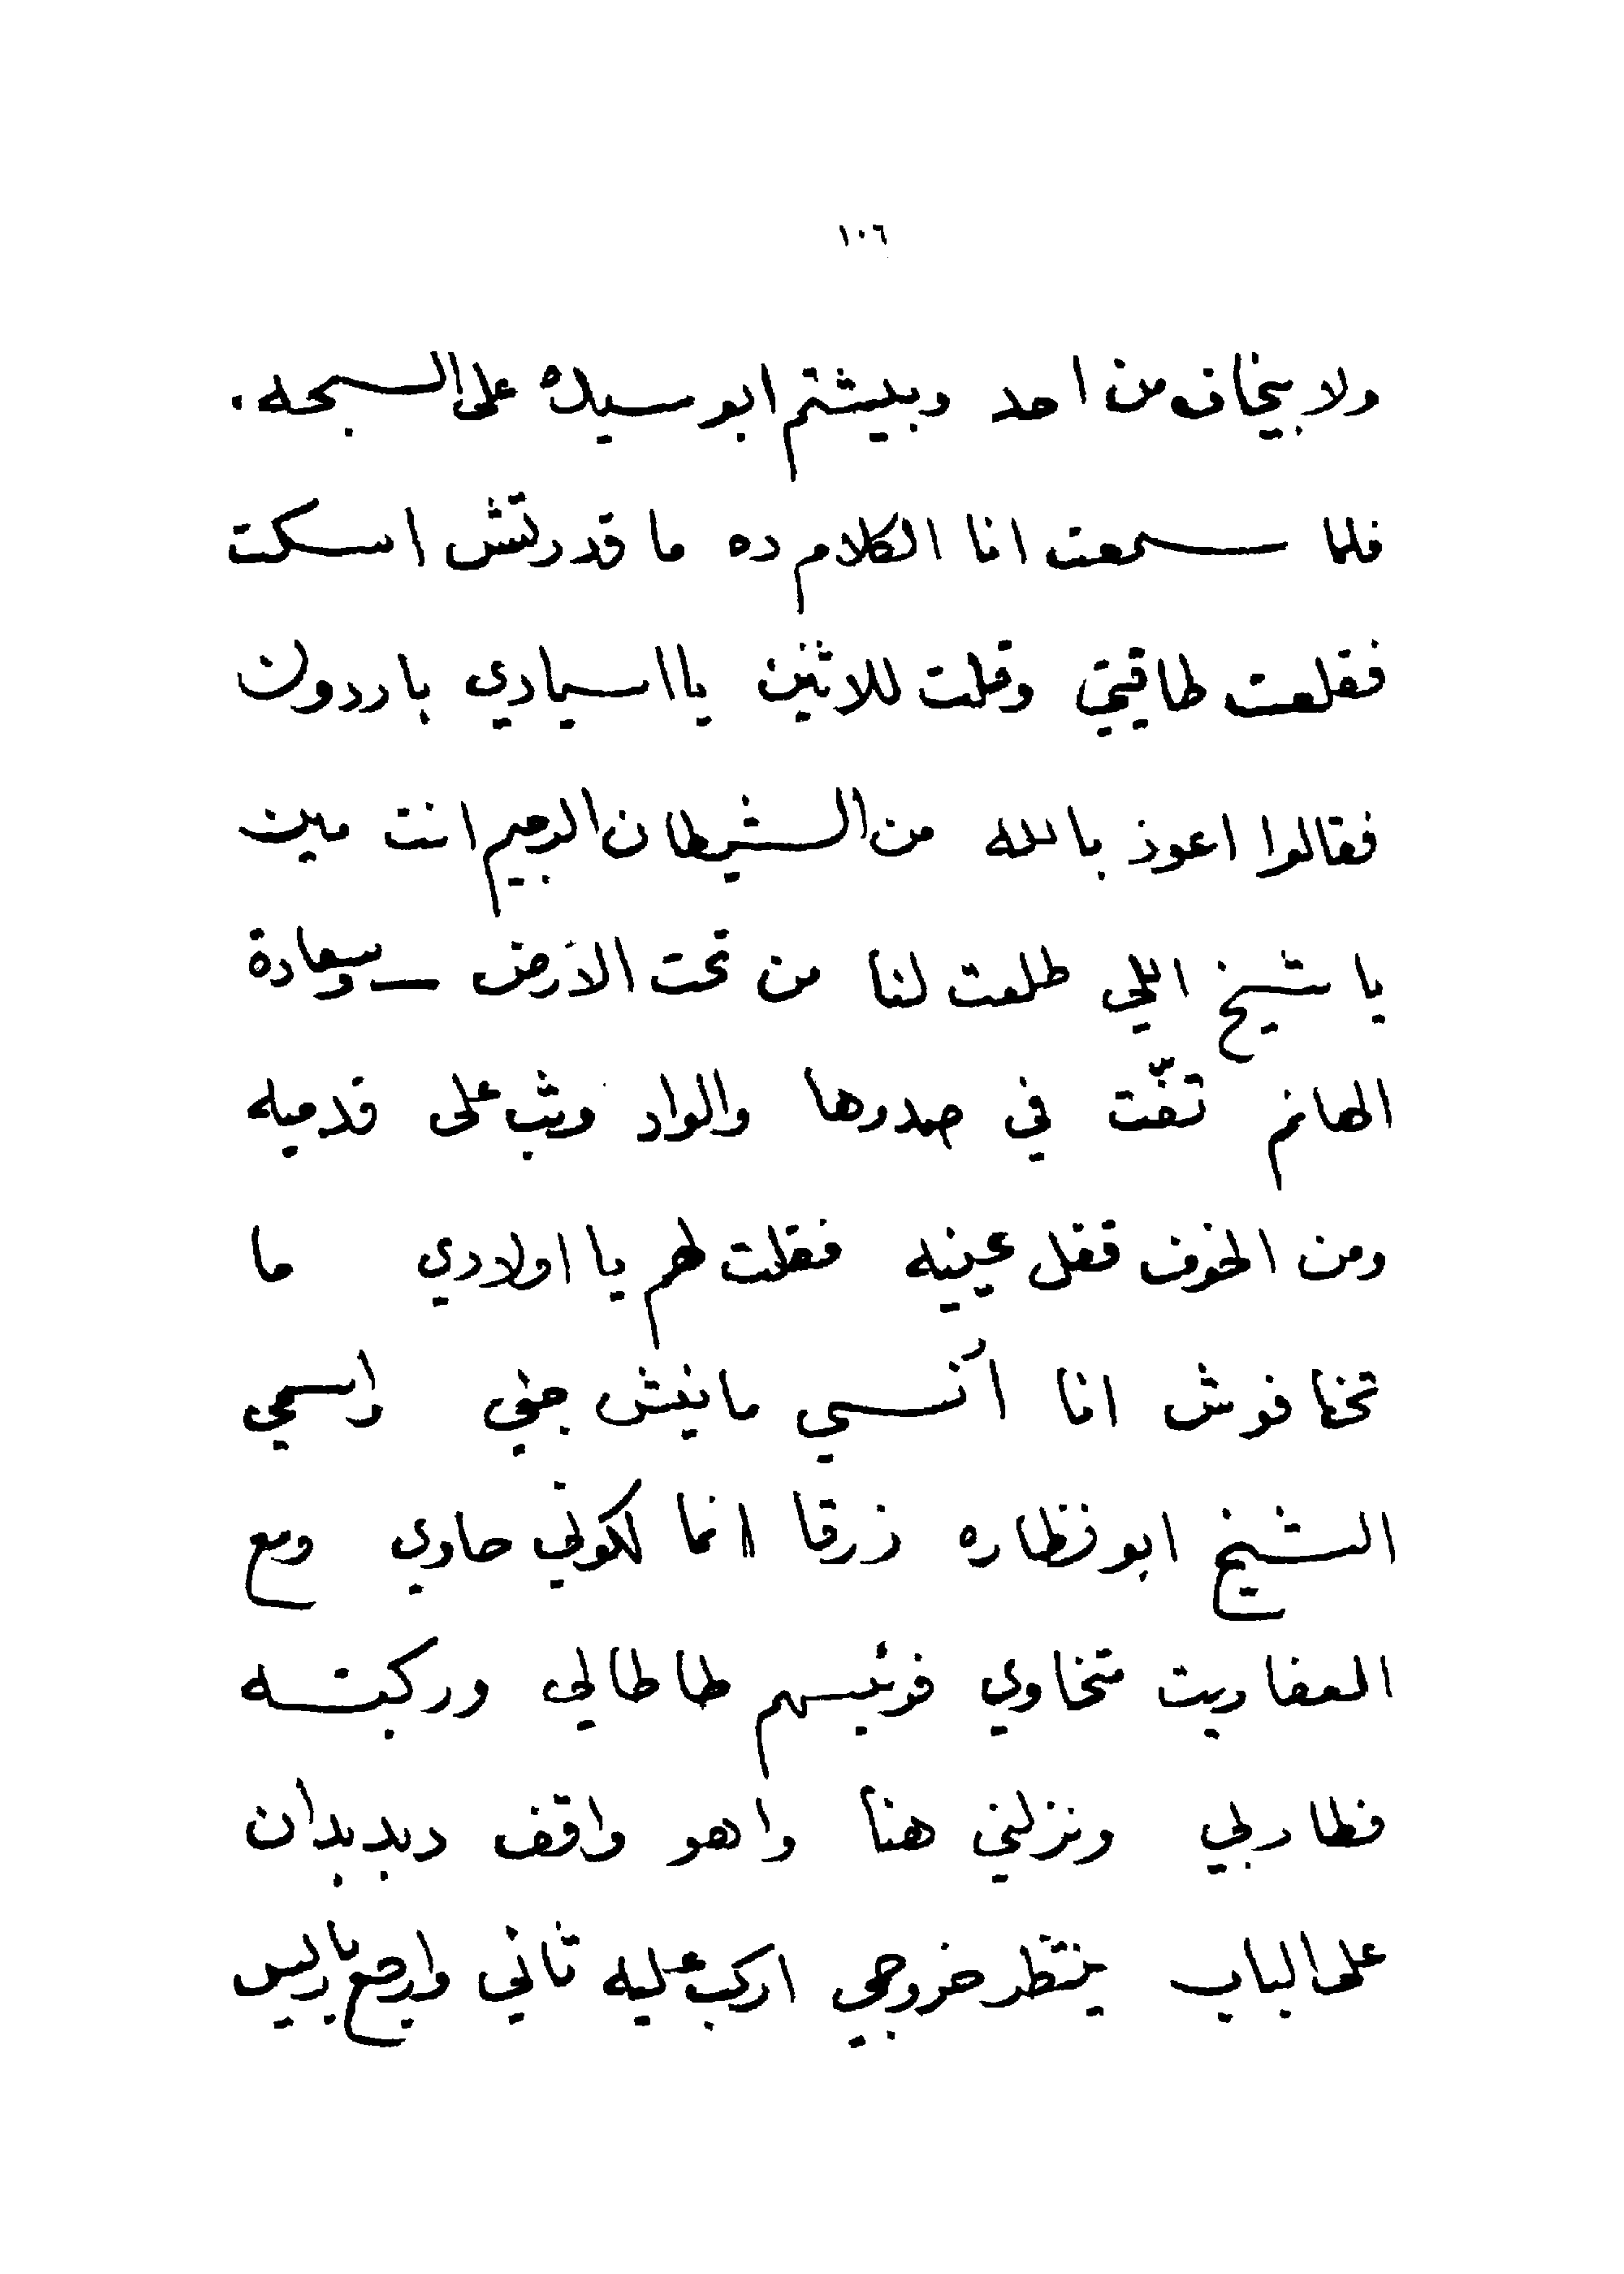 ١٠٦
ولا بيخاف من احد وبيشتم ابو سيدك على السبحه .
فلما سمعت انا الكلام ده ما قدرتش اسكت
فقلعت طاقيتي وقلت للاثنين يا اسيادي باردون
فقالوا اعوذ بالله من الشيطان الرجيم انت مين
يا شيخ اللي طلعت لنا من تحت الارض — وسعادة
الهانم تفّت في صدرها والواد وثب على قدميه
ومن الخوف قفل عينيه فقلت لهم يا اولادي ما
تخافوش انا أنسي مانيش جني واسمي
الشيخ ابو نظاره زرقا انما لكوني حاوي ومع
العفاريت متخاوي فرئيسهم طاطالي وركبته
فطار بي ونزلني هنا واهو واقف ديدبان
على الباب ينتظر خروجي اركب عليه ثاني وارجع باريس